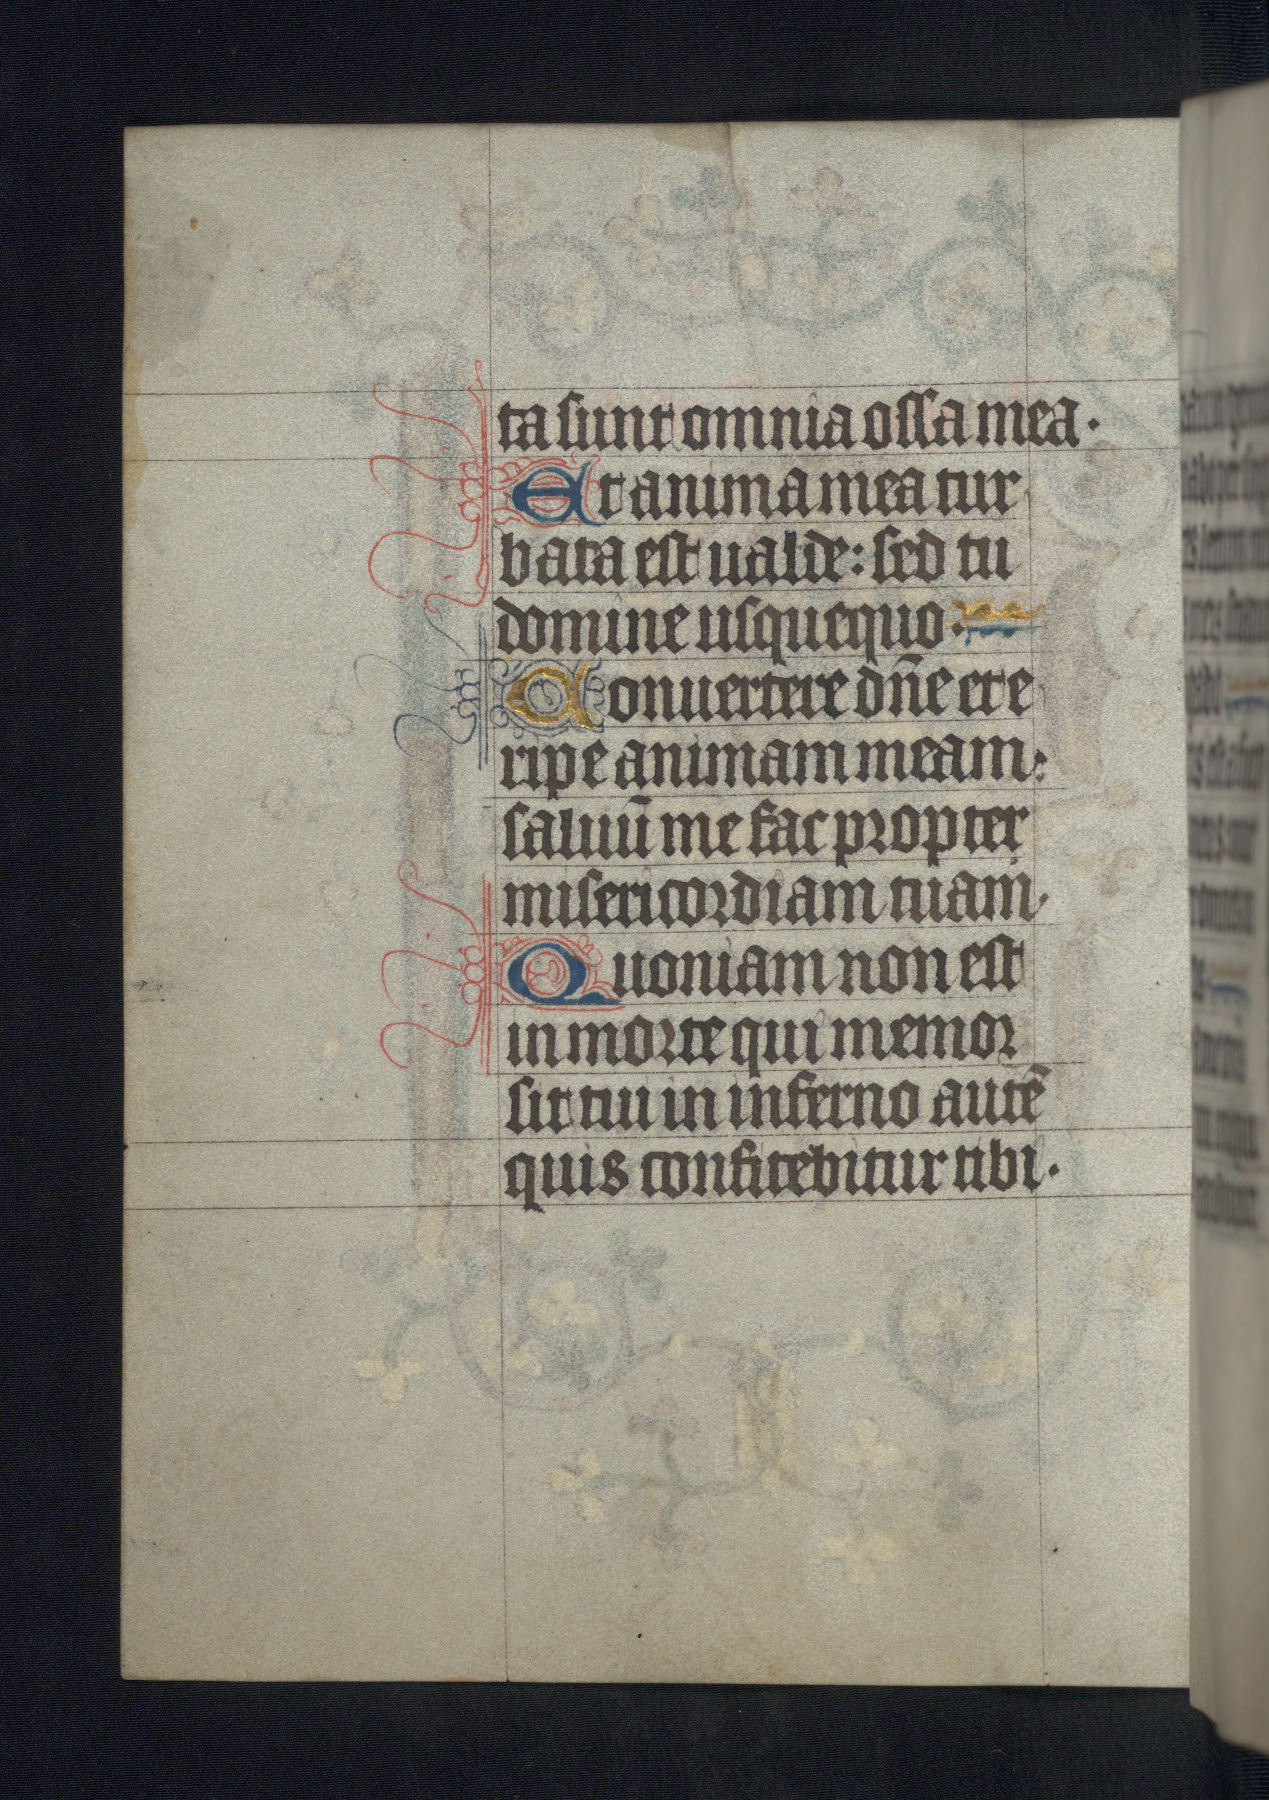 ta sunt omnia ossa mea·
Et anima mea tur
bata est ualde: sed tu
domine usquequo·
Conuertere dn̄e et e
ripe animam meam:
saluū me fac propter
misericordiam tuam·
Quoniam non est
in morte qui memor
sit tui in inferno autē
quis confitebitur tibi·